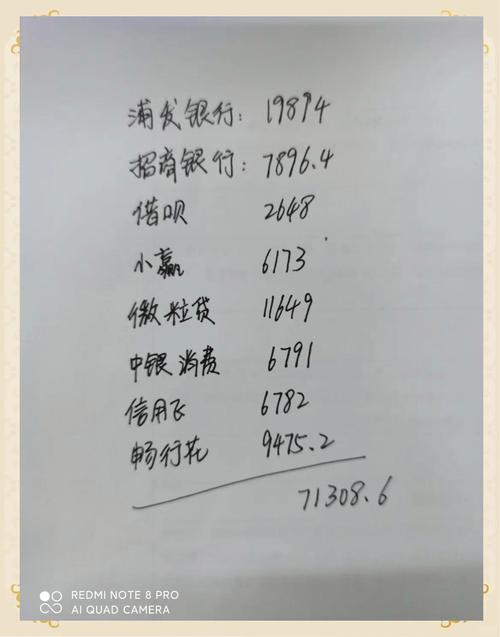 浦发银行: 19894
招商银行: 7896.4
借呗 2648
小赢 6173
微粒贷 11649
中银消费 6791
信用飞 6782
畅行花 9475.2
71308.6
REDMI NOTE 8 PRO
AI QUAD CAMERA